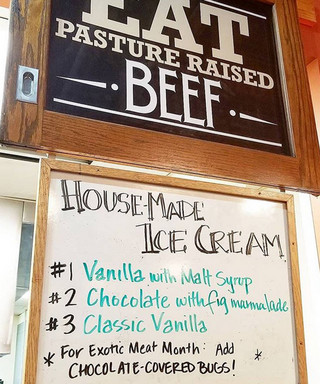 EAT
PASTURE RAISED
• BEEF •
HOUSE-MADE
ICE CREAM
#1 Vanilla with Malt Syrup
#2 Chocolate with fig marmalade
#3 Classic Vanilla
* For Exotic Meat Month: Add *
CHOCOLATE-COVERED BUGS!